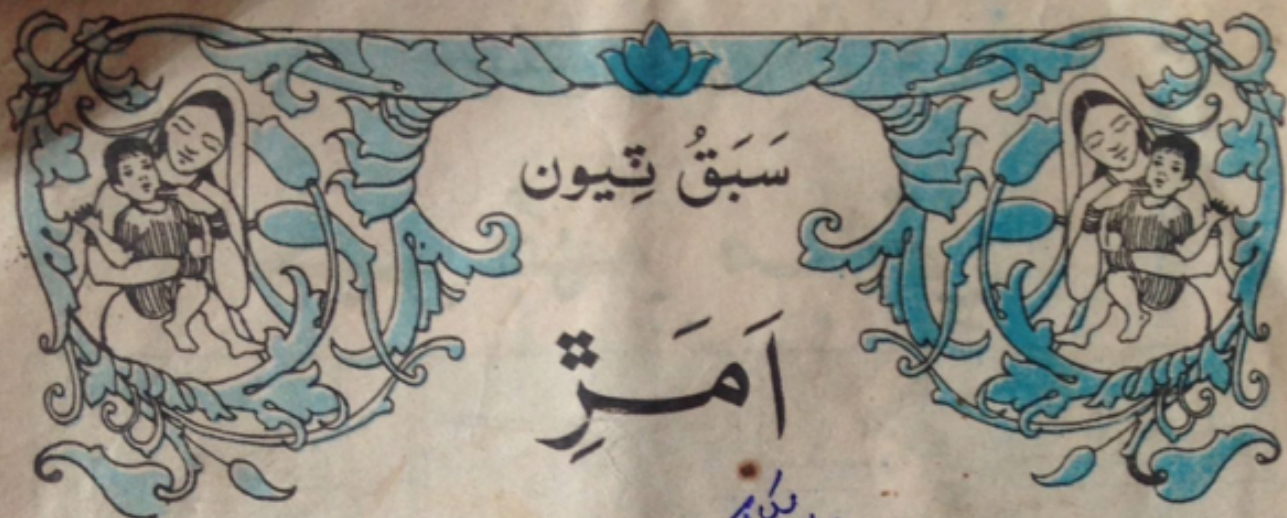 سَبَقُ ٽِيون
اَمَڙِ